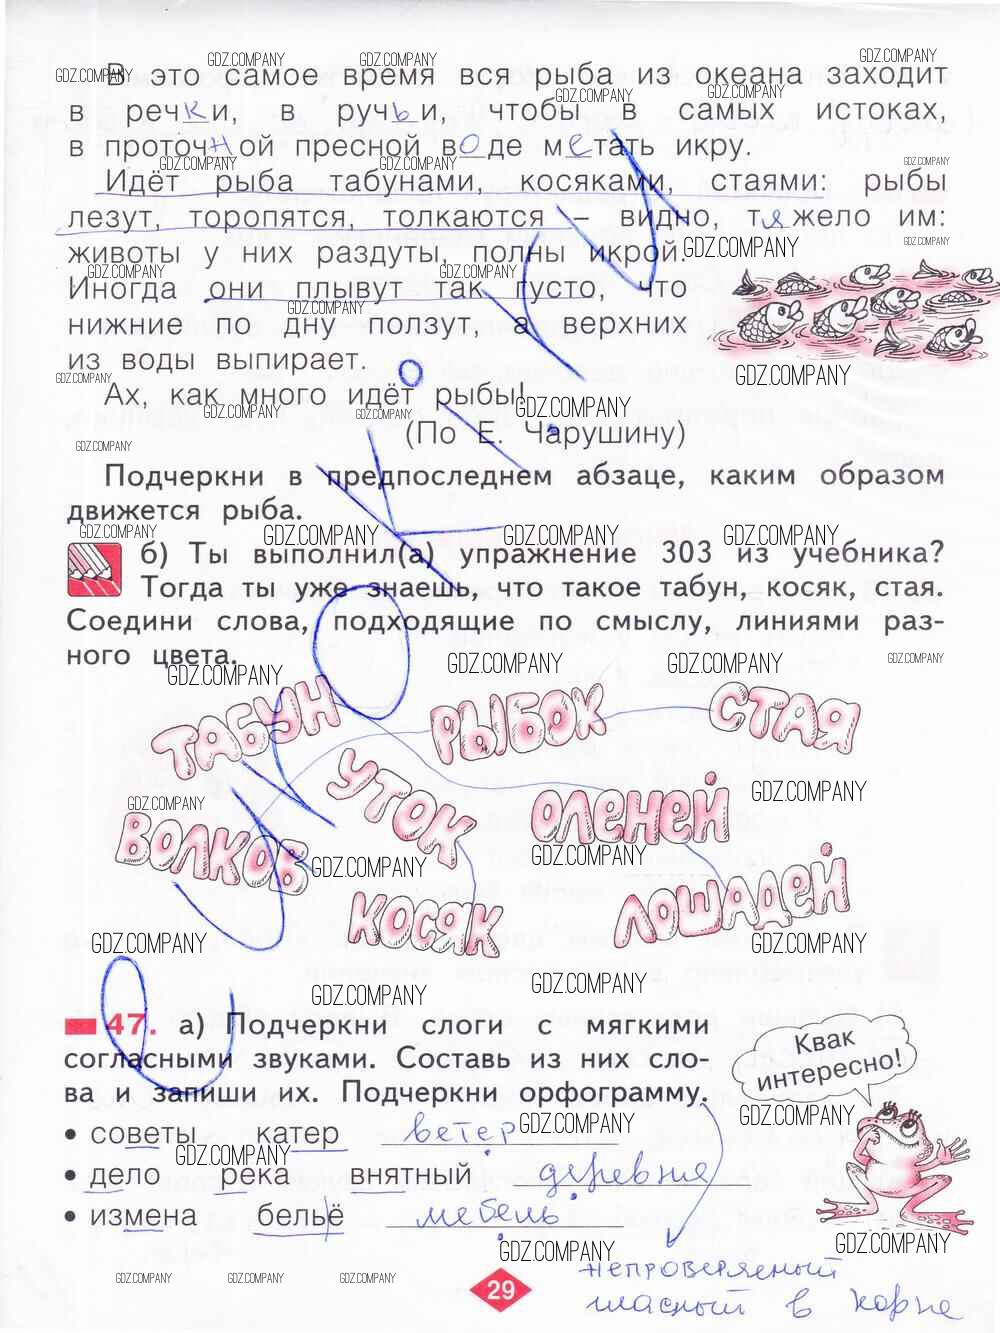 В это самое время вся рыба из океана заходит
в речки, в ручьи, чтобы в самых истоках,
в проточной пресной воде метать икру.
Идёт рыба табунами, косяками, стаями: рыбы
лезут, торопятся, толкаются – видно, тяжело им:
животы у них раздуты, полны икрой.
Иногда они плывут так густо, что
нижние по дну ползут, а верхних
из воды выпирает.
Ах, как много идёт рыбы!
(По Е. Чарушину)
Подчеркни в предпоследнем абзаце, каким образом
движется рыба.
б) Ты выполнил(а) упражнение 303 из учебника?
Тогда ты уже знаешь, что такое табун, косяк, стая.
Соедини слова, подходящие по смыслу, линиями раз-
ного цвета.
ТАБУН РЫБОК СТАЯ
УТОК ОЛЕНЕЙ
ВОЛКОВ
КОСЯК ЛОШАДЕЙ
47. а) Подчеркни слоги с мягкими
согласными звуками. Составь из них сло-
ва и запиши их. Подчеркни орфограмму.
Квак
интересно!
• советы катер ветер
• дело река внятный деревня
• измена бельё мебель
непроверяемый
гласный в корне
29
GDZ.COMPANY